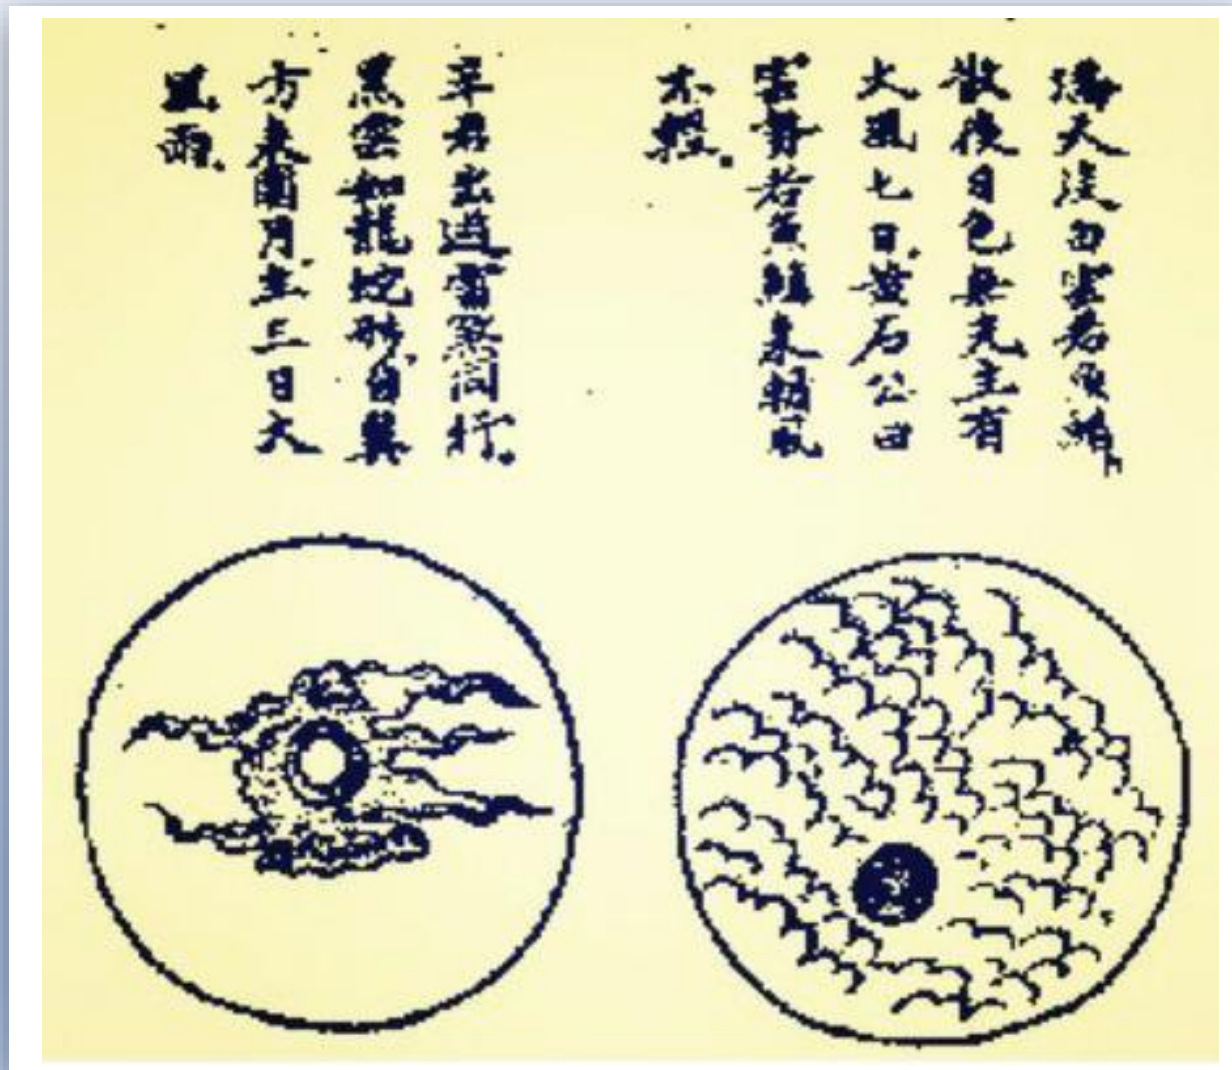 滿天淡白雲若魚
散後日色無光主有
大風七日黃石公曰
雲勢若魚鱗來朝風
不輕
辛君出遊雷同行
黑雲如龍蛇形自巽
方來圍月主三日大
風雨